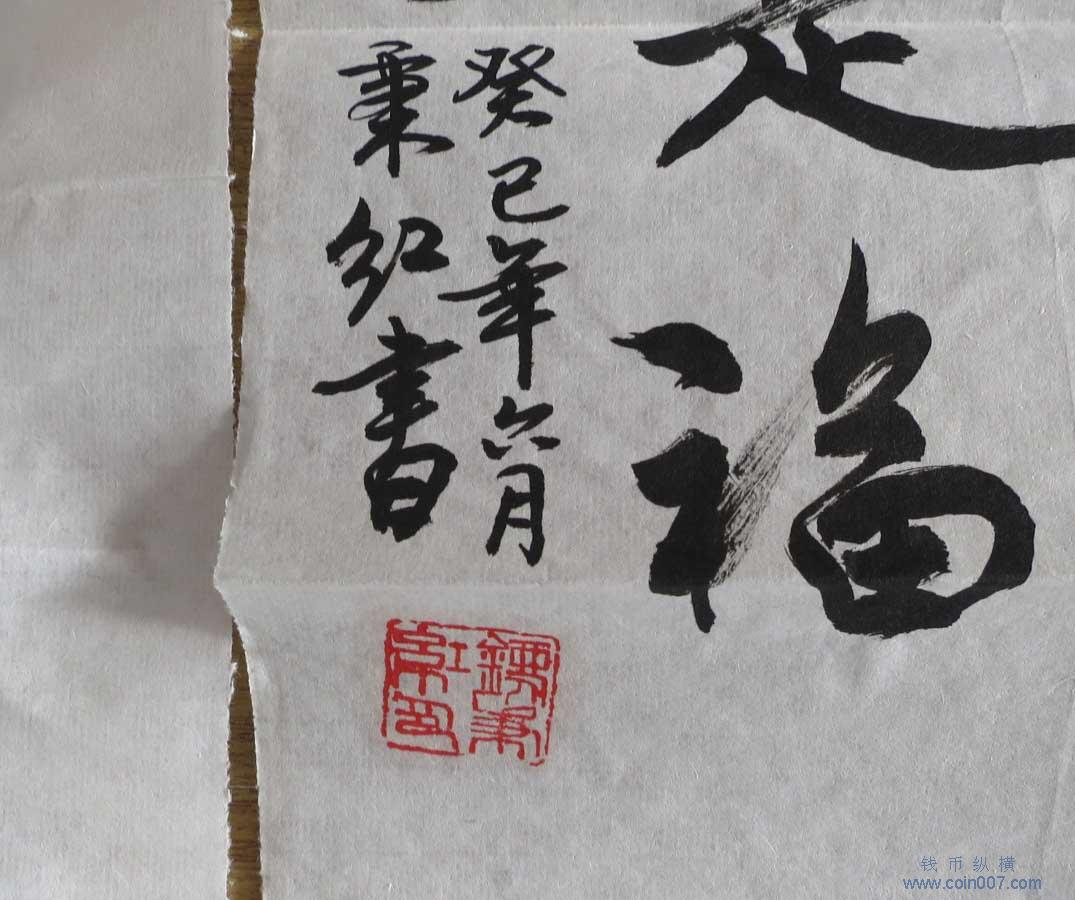 是福
癸巳年六月
秉红书
秉紅印
钱币纵横
www.coin007.com